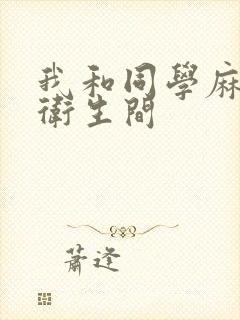 我和同學麻
衛生間
蕭逢